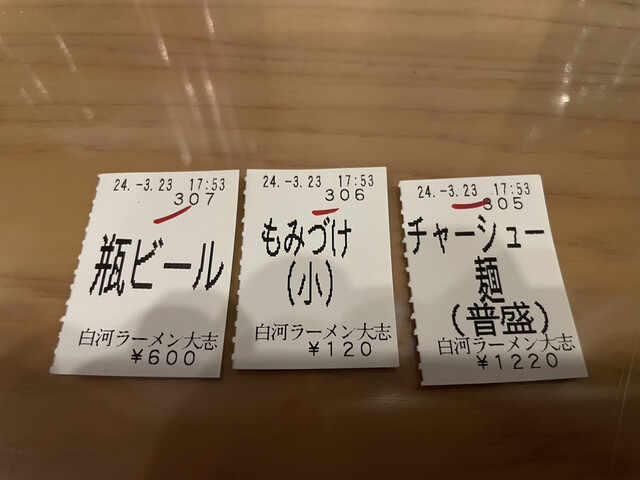 24.-3.23 17:53
307
瓶ビール
白河ラーメン大志
¥600
24.-3.23 17:53
306
もみづけ
(小)
白河ラーメン大志
¥120
24.-3.23 17:53
305
チャーシュー
麺
(普盛)
白河ラーメン大志
¥1220